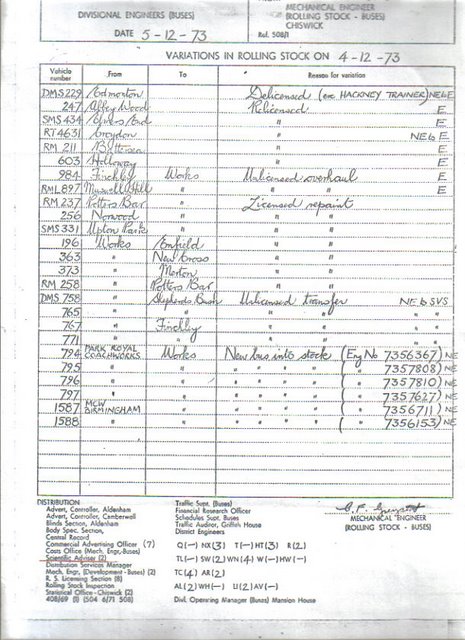 DIVISIONAL ENGINEERS (BUSES)
DATE 5-12-73
MECHANICAL ENGINEER
(ROLLING STOCK - BUSES)
CHISWICK
Ref. 508/1
VARIATIONS IN ROLLING STOCK ON 4-12-73
Vehicle number From To Reason for variation
DMS 229 Edmonton Delicensed (ex HACKNEY TRAINER) NE6E
247 Abbey Wood Relicensed E
SMS 434 " E
RT 4631 Croydon " NE6E
RM 211 Battersea " E
603 Holloway " E
984 Finchley Works Unlicensed overhaul E
RML 897 Muswell Hill " " " E
RM 237 Potters Bar " Licensed repaint
256 Norwood " " "
SMS 331 Upton Park " " "
196 Works Enfield " "
363 " New Cross " "
373 " Merton " "
RM 258 " Potters Bar " "
DMS 758 " Shepherds Bush Unlicensed transfer NE6SVS
765 " " " " " "
767 " Finchley " " " "
771 " " " " " "
794 PARK ROYAL COACHWORKS Works New bus into stock (Eng No 7356367) NE
795 " " " " " " ( " 7357808) NE
796 " " " " " " ( " 7357810) NE
797 " " " " " " ( " 7357627) NE
1587 MCW BIRMINGHAM " " " " " ( " 7356711) NE
1588 " " " " " " ( " 7356153) NE
MECHANICAL ENGINEER
(ROLLING STOCK - BUSES)
DISTRIBUTION
Advert. Controller, Aldenham
Advert. Controller, Camberwell
Blinds Section, Aldenham
Body Spec. Section,
Central Record
Commercial Advertising Officer (7)
Costs Office (Mech. Engr, Buses)
Scientific Adviser (2)
Distribution Services Manager
Mech. Engr, (Development - Buses) (2)
R. S. Licensing Section (8)
Rolling Stock Inspection
Statistical Office - Chiswick (2)
408/69 (1) (504 6/71 508)
Traffic Supt. (Buses)
Financial Research Officer
Schedules Supt. Buses
Traffic Auditor, Griffith House
District Engineers
Q(—) NX(3) T(—) HT(3) R(2)
TL(—) SW(2) WN(4) W(—) HW(—)
TC(4) AR(2)
AL(2) WH(—) U(2) AV(—)
Divl. Operating Manager (Buses) Mansion House